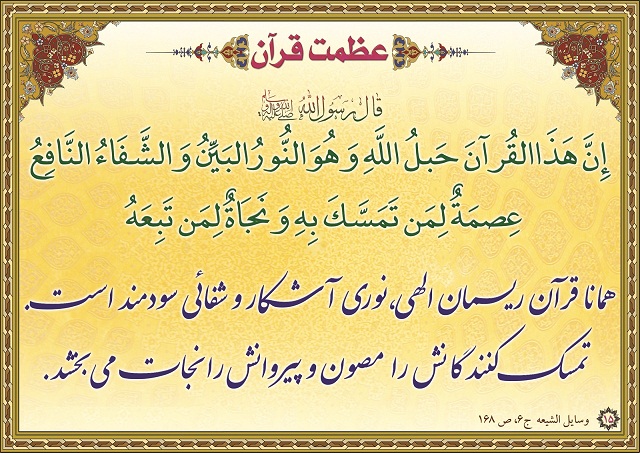 عظمت قرآن
قال رسول الله ﷺ
إِنَّ هَذَا القُرآنَ حَبلُ اللَّهِ وَ هُوَ النُّورُ البَيِّنُ وَ الشَّفَاءُ النَّافِعُ
عِصمَةٌ لِمَن تَمَسَّكَ بِهِ وَ نَجَاةٌ لِمَن تَبِعَهُ
همانا قرآن ریسمان الهی، نوری آشکار و شفائی سودمند است.
تمسک کنندگانش را مصون و پیروانش را نجات می بخشد.
۱۵ وسایل الشیعه ج۶، ص ۱۶۸